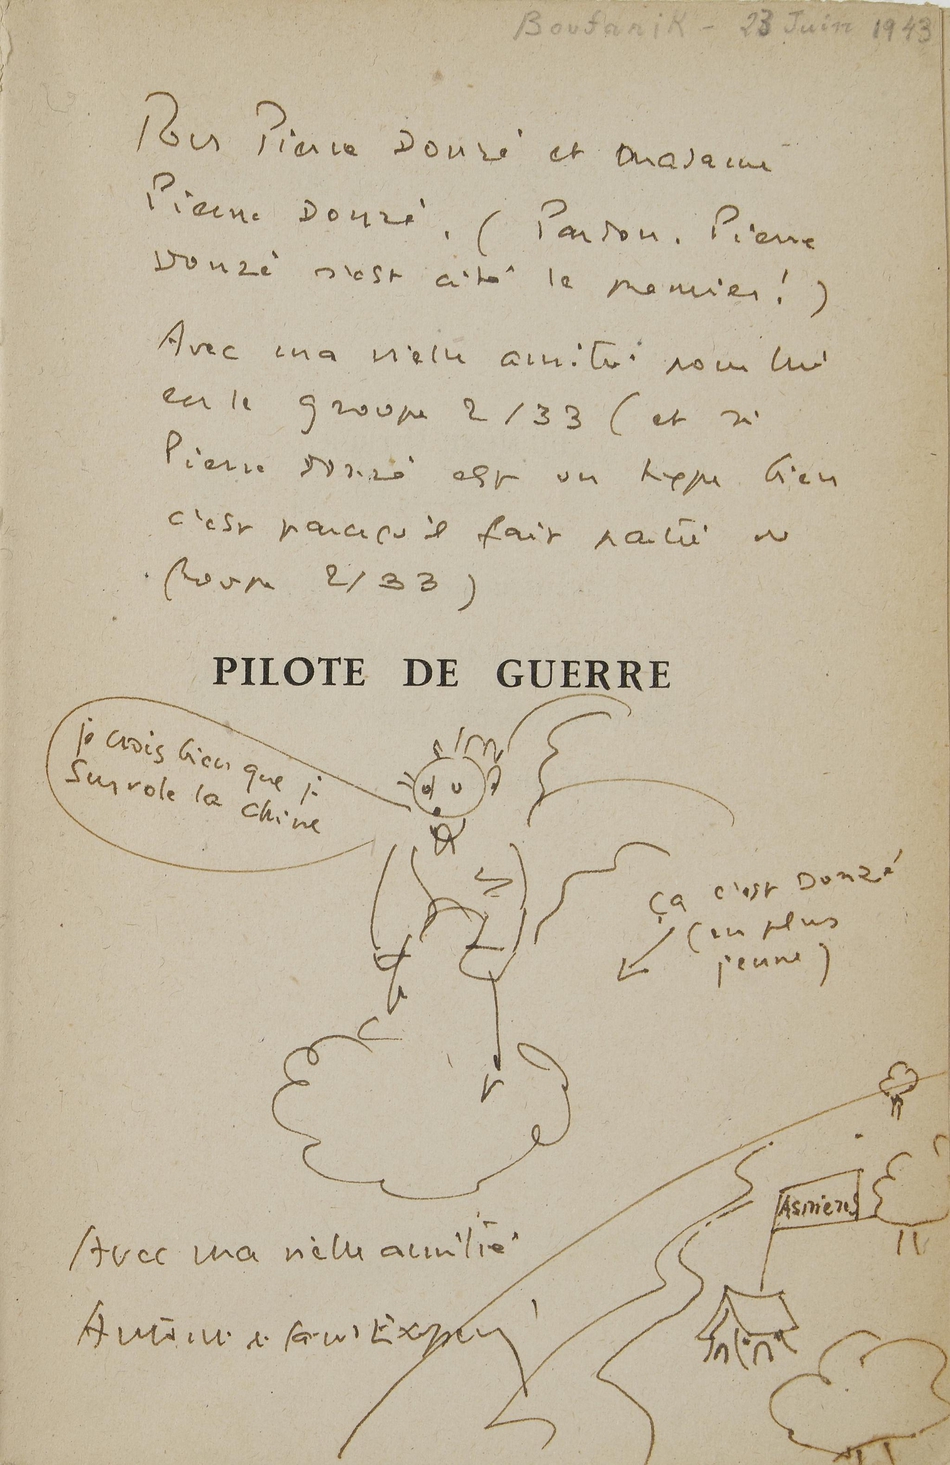 Boufarik - 23 Juin 1943
Pour Pierre Donzé et madame
Pierre Donzé. (Pardon. Pierre
Donzé s'est cité le premier!)
Avec ma vieille amitié pour lui
et le groupe 2/33 (et si
Pierre Donzé est un type bien
c'est parcequ'il fait partie du
Groupe 2/33)
PILOTE DE GUERRE
je crois bien que je
survole la chine
ça c'est Donzé
(en plus
jeune)
Asnieres
Avec ma vieille amitié
Antoine de Saint Exupéry